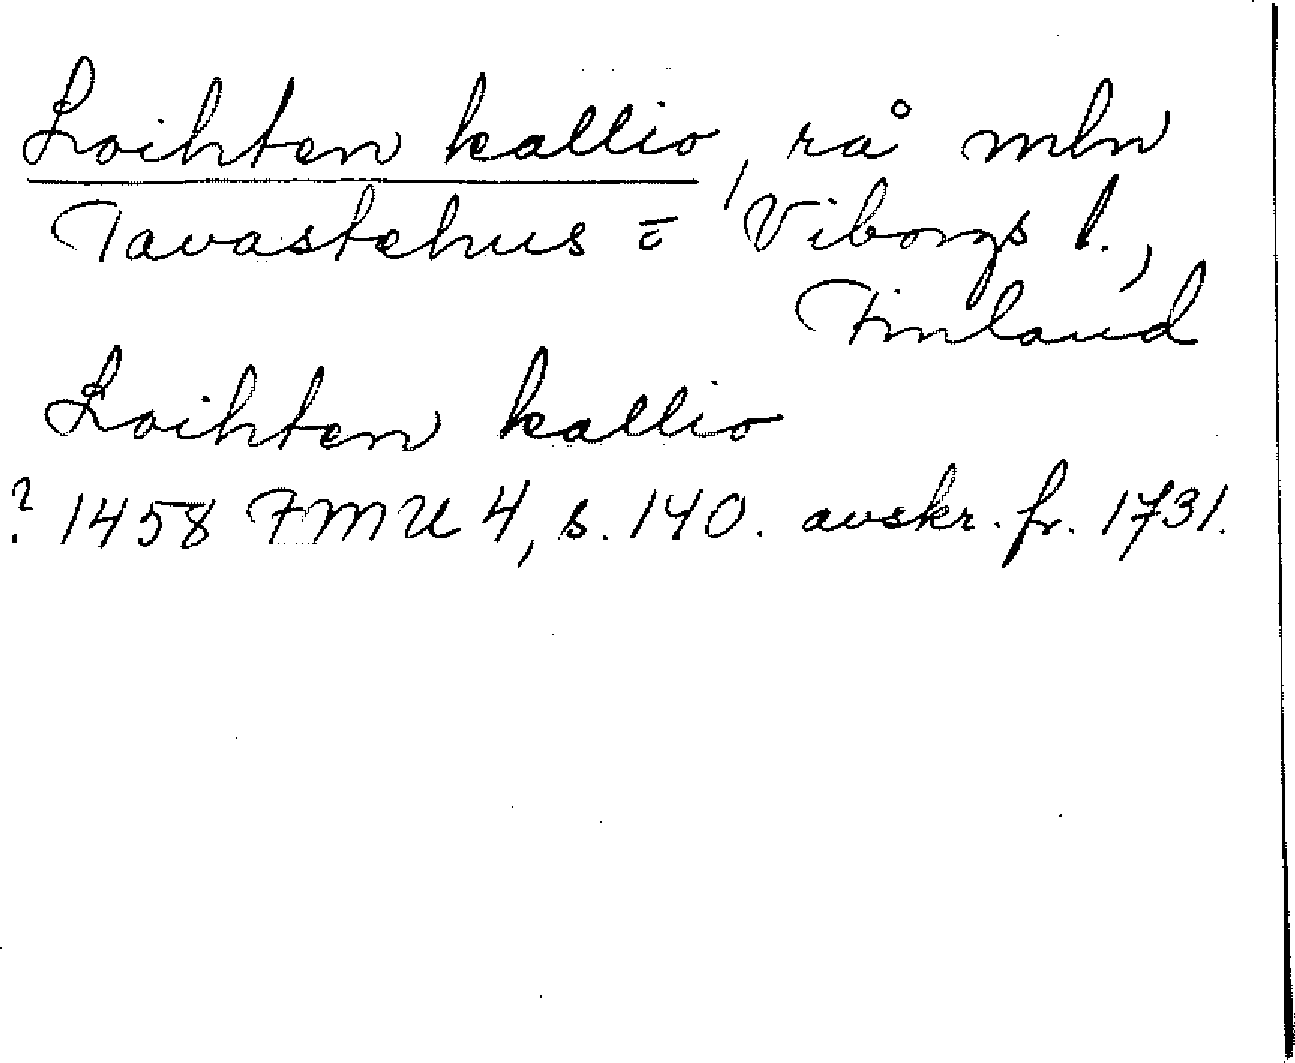 Loihten kallio, rå mln
Tavastehus = Viborgs l.,
Finland
Loihten kallio
? 1458 FMU 4, s. 140. avskr. fr. 1731.